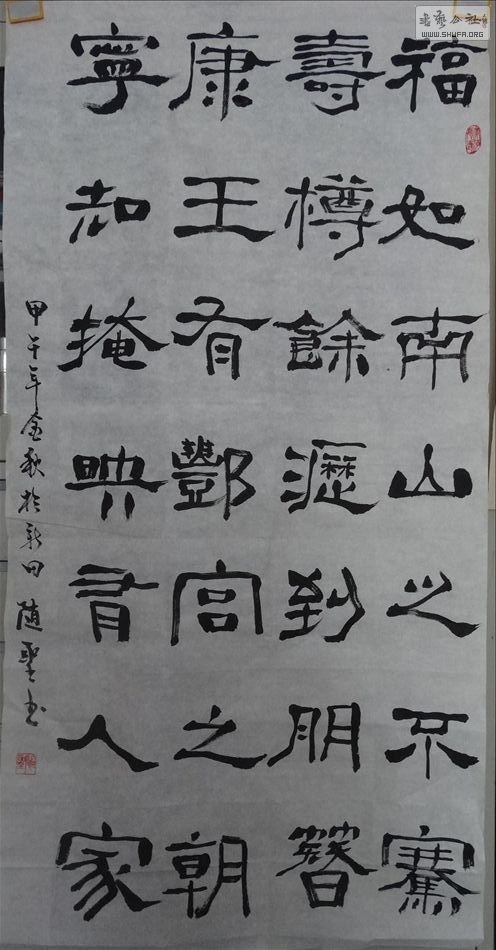 福如南山之不騫
壽樽餘瀝到朋簪
康王有酆宮之朝
寧知掩映有人家
甲午年金秋於新田 随聖书
书艺公社
WWW.SHUFA.ORG